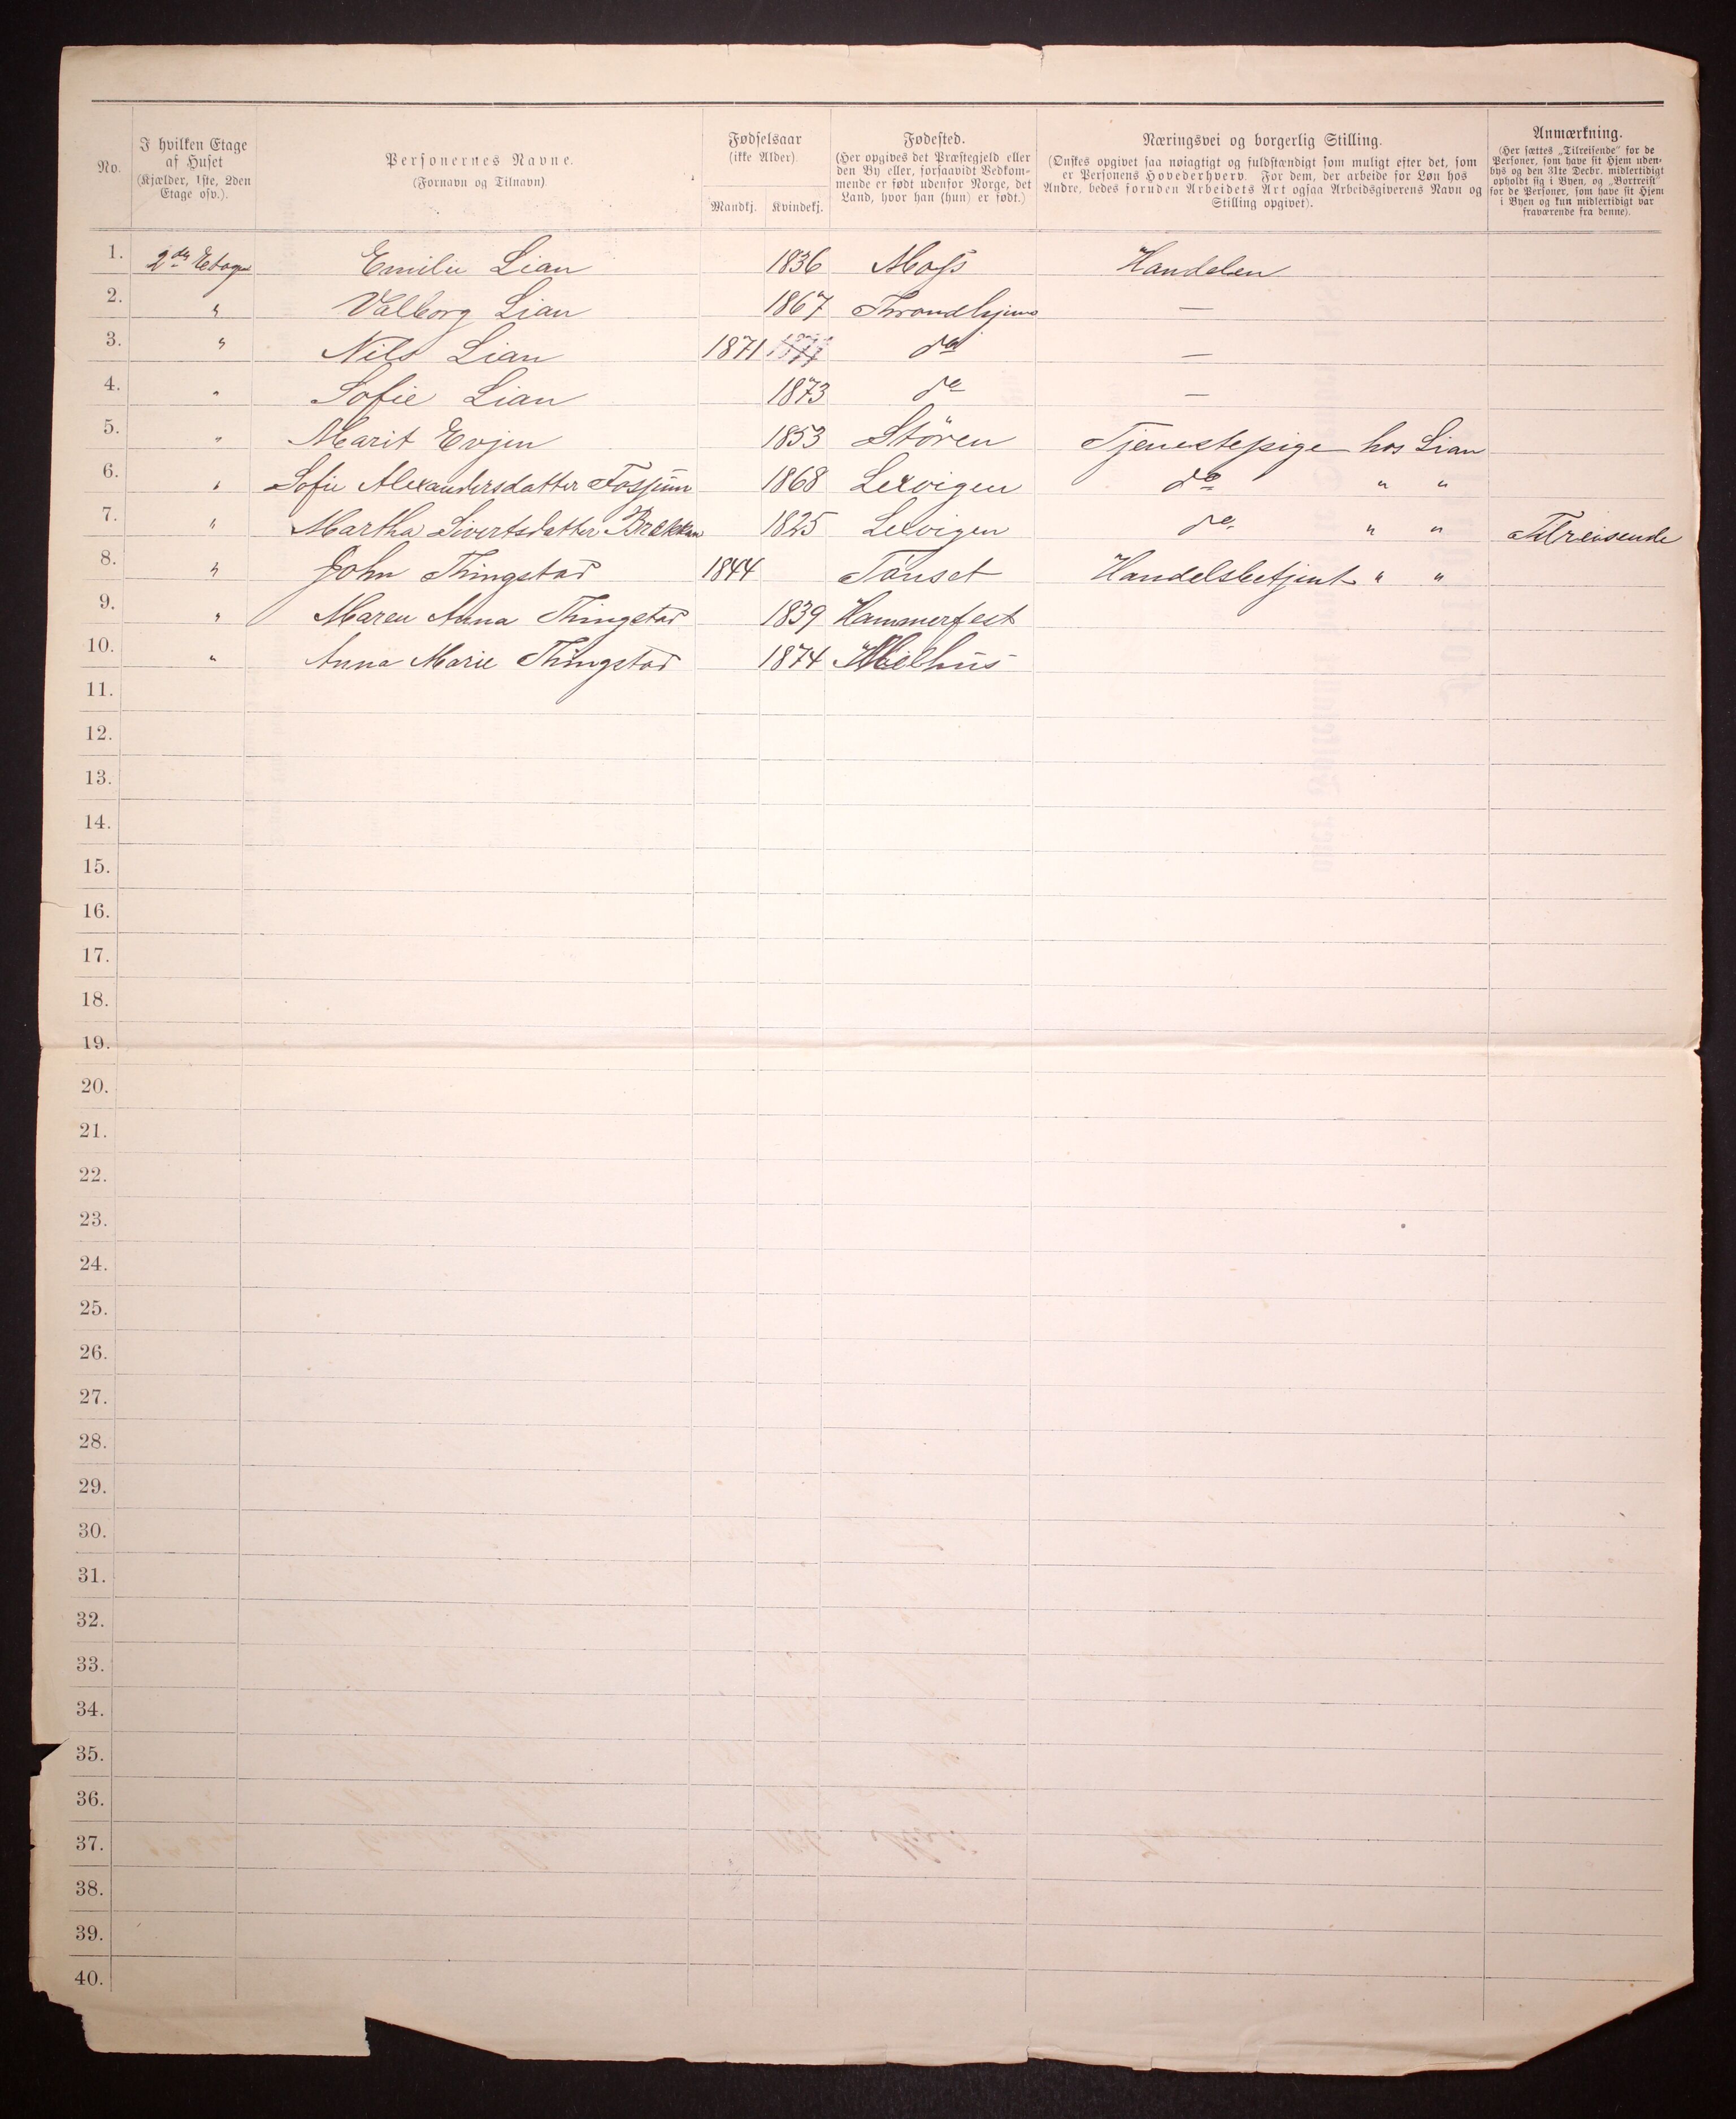 No.
I hvilken Etage af Huset (Kjælder, 1ste, 2den Etage osv.).
Personernes Navne. (Fornavn og Tilnavn)
Fødselsaar (ikke Alder)
Mandkj. Kvindekj.
Fødested. (Her opgives det Præstegjeld eller den By eller, forsaavidt Vedkommende er født udenfor Norge, det Land, hvor han (hun) er født.)
Næringsvei og borgerlig Stilling. (Ønskes opgivet saa nøiagtigt og fuldstændigt som muligt efter det, som er Personens Hovederhverv. For dem, der arbeide for Løn hos Andre, bedes foruden Arbeidets Art ogsaa Arbeidsgiverens Navn og Stilling opgivet).
Anmærkning. (Her sættes „Tilreisende" for de Personer, som have sit Hjem udenbys og den 31te Decbr. midlertidigt opholdt sig i Byen, og „Bortreist" for de Personer, som have sit Hjem i Byen og kun midlertidigt var fraværende fra denne).
1. 2den Etage Emilie Lian 1836 Moss Handelen
2. " Valborg Lian 1867 Throndhjem —
3. " Nils Lian 1871 1871 do —
4. " Sofie Lian 1873 do —
5. " Marit Evjen 1853 Stören Tjenestepige hos Lian
6. " Sofie Alexandersdatter 1868 Lexvigen do " "
7. " Martha Sivertsdatter Brækkan 1825 Lexvigen do " " Tilreisende
8. " John Thingstad 1844 Tönset Handelsbetjent " "
9. " Maren Anna Thingstad 1839 Hammerfest
10. " Anna Marie Thingstad 1874 Melhus
11.
12.
13.
14.
15.
16.
17.
18.
19.
20.
21.
22.
23.
24.
25.
26.
27.
28.
29.
30.
31.
32.
33.
34.
35.
36.
37.
38.
39.
40.